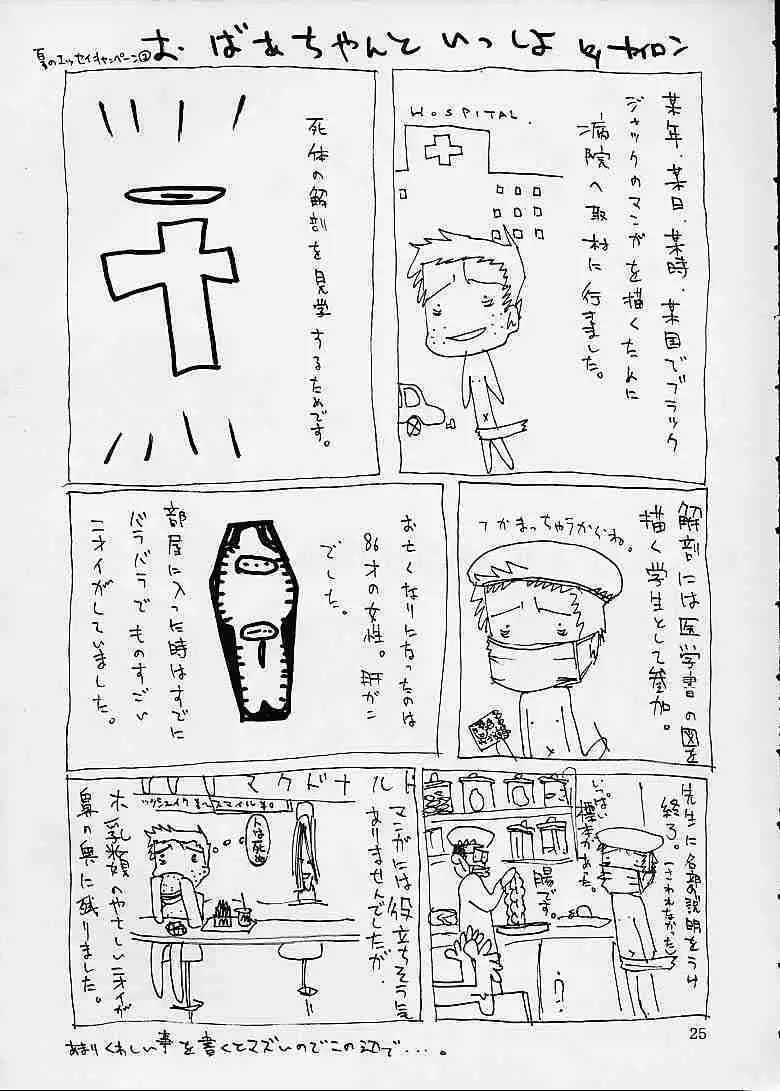 夏のエッセイキャンペーン②
おばあちゃんといっしょ
by ナイロン
某年、某日、某時、某国でブラック
ジャックのマンガを描くために
病院へ取材に行きました。
HOSPITAL.
死体の解剖を見学するためです。
解剖には医学書の図を
描く学生として参加。
つかまっちゃうからね。
お亡くなりになったのは
86才の女性。肝ガン
でした。
部屋に入った時はすでに
バラバラでものすごい
ニオイがしていました。
先生に各部の説明をうけ
終了。(さわれなかった)
いっぱい
標本があった。
腸です。
?
マクドナルド
マンガには役立ちそうに
ありませんでしたが、
人は死ぬ
ホ乳類のやさしいニオイが
鼻の奥に残りました。
あまりくわしい事を書くとマズいのでこの辺で…。
25